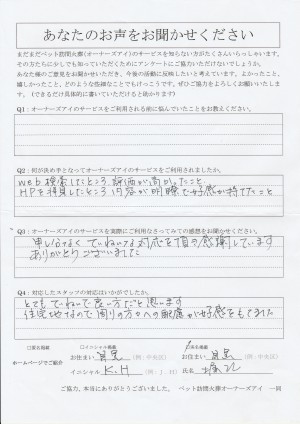 あなたのお声をお聞かせください
まだまだペット訪問火葬(オーナーズアイ)のサービスを知らない方がたくさんいらっしゃいます。
その方たちに少しでも知っていただくためにアンケートにご協力いただけないでしょうか。
あなた様のご意見をお聞かせいただき、今後の活動に反映したいと考えています。よかったこと、
嬉しかったこと、どのような些細なことでもけっこうです。ぜひご協力をよろしくお願いいたします。
(できるだけ具体的に書いていただけると助かります)
Q1:オーナーズアイのサービスをご利用される前に悩んでいたことをお教えください。
Q2:何が決め手となってオーナーズアイのサービスをご利用されましたか。
web検索したところ、評価が高かったこと
HPを拝見したところ内容が明瞭で好感が持てたこと
Q3:オーナーズアイのサービスを実際にご利用なさってみての感想をお聞かせください。
申し分なくていねいな対応を頂き感謝しています
ありがとうございました
Q4:対応したスタッフの対応はいかがでしたか。
とてもていねいで良い方だと思います
住宅地なので周りの方々への配慮が好感をもてました
ホームページでご紹介
□匿名掲載 □イニシャル掲載 実名掲載
お住まい (例:中央区) お住まい (例:中央区)
イニシャル K.H (例:J・H) 氏名
ご協力、本当にありがとうございました。 ペット訪問火葬オーナーズアイ 一同